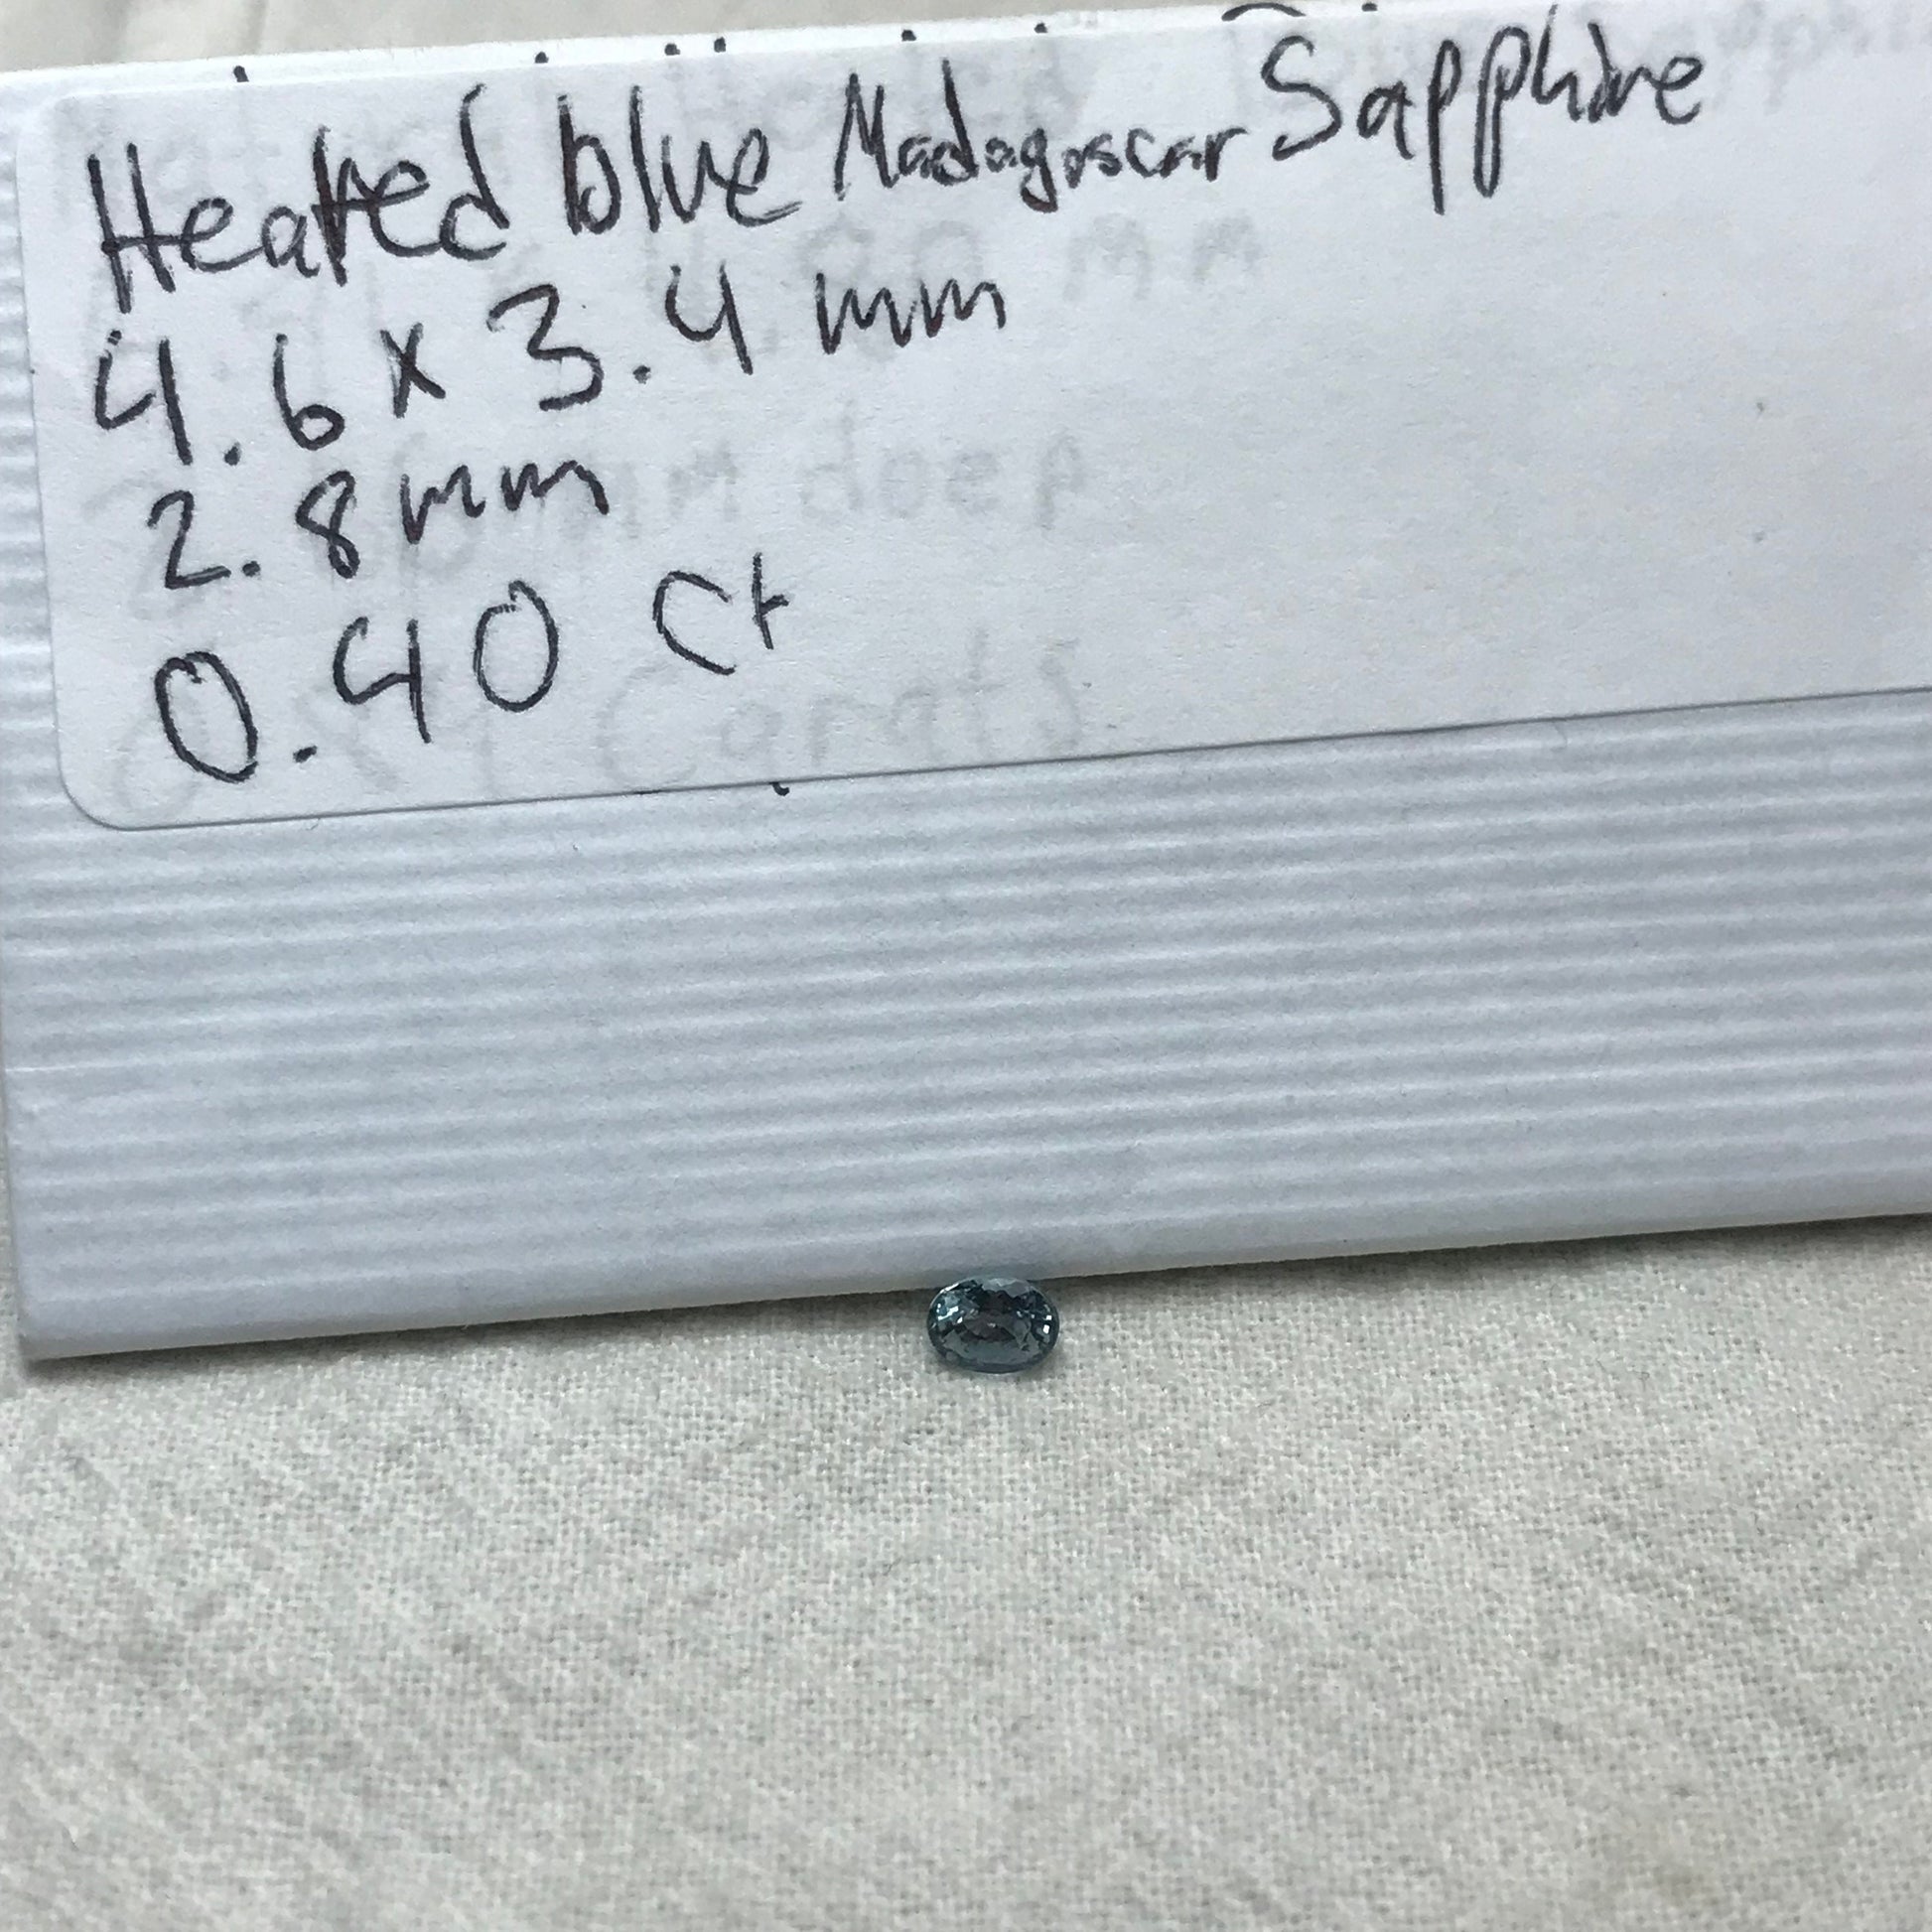 Heated blue Madagascar Sapphire
4.6 x 3.4 mm
2.8mm
0.40 Ct